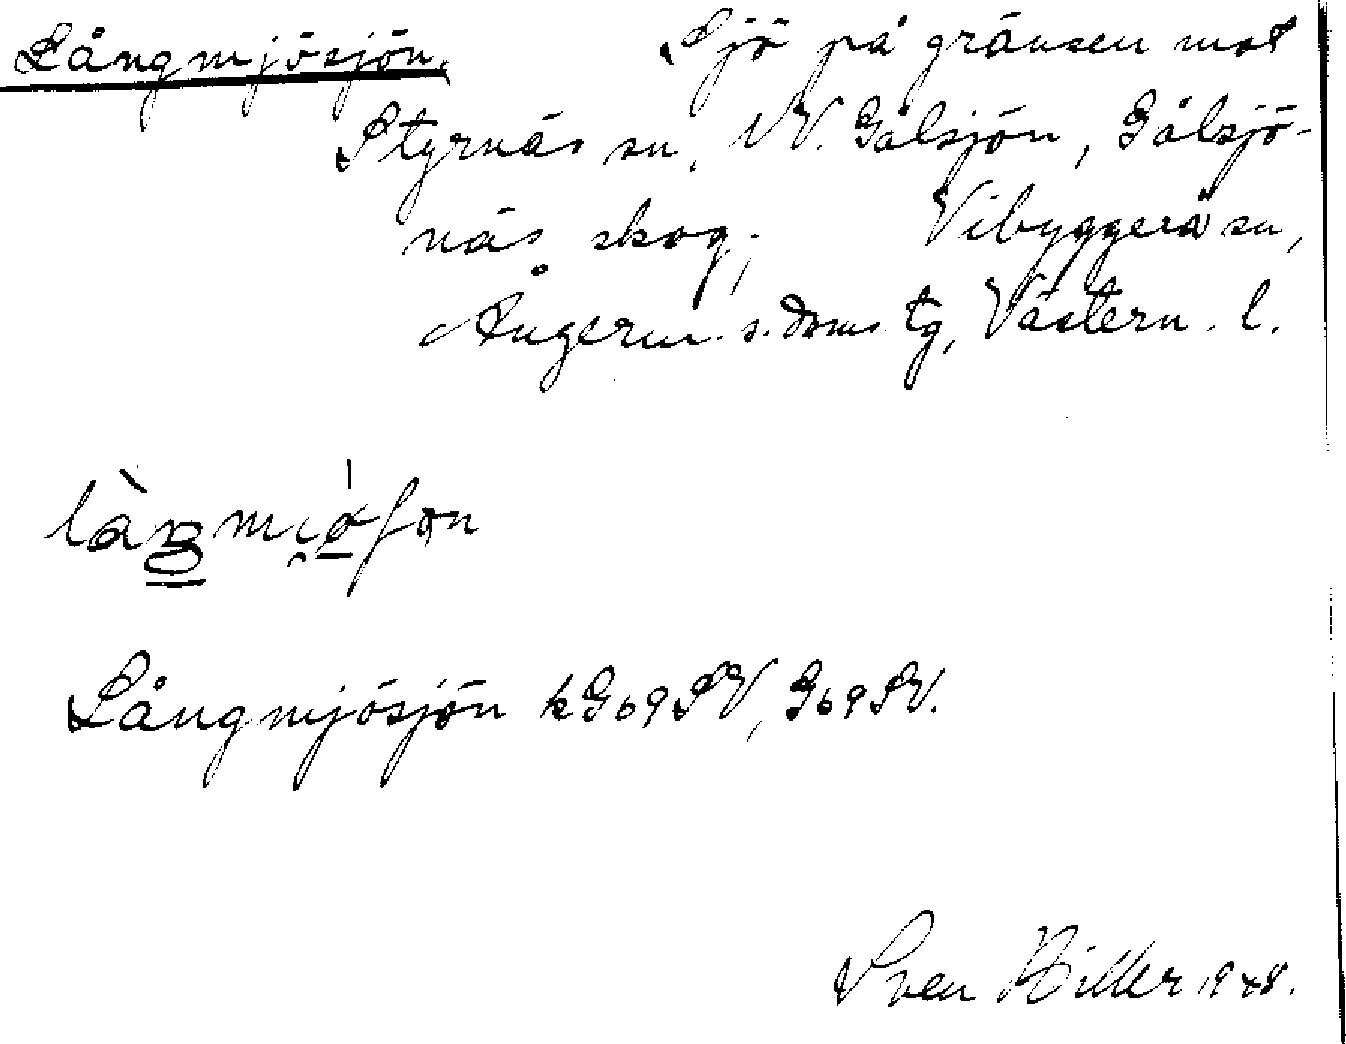 Långmjösjön. Sjö på gränsen mot
Styrnäs sn, NV. Gålsjön, Gålsjö-
näs skog; Vibyggerå sn,
Ångerm. s. doms tg, Västern. l.
Långmjösjön kG69SV, G69SV.
Sven Hiller 1948.